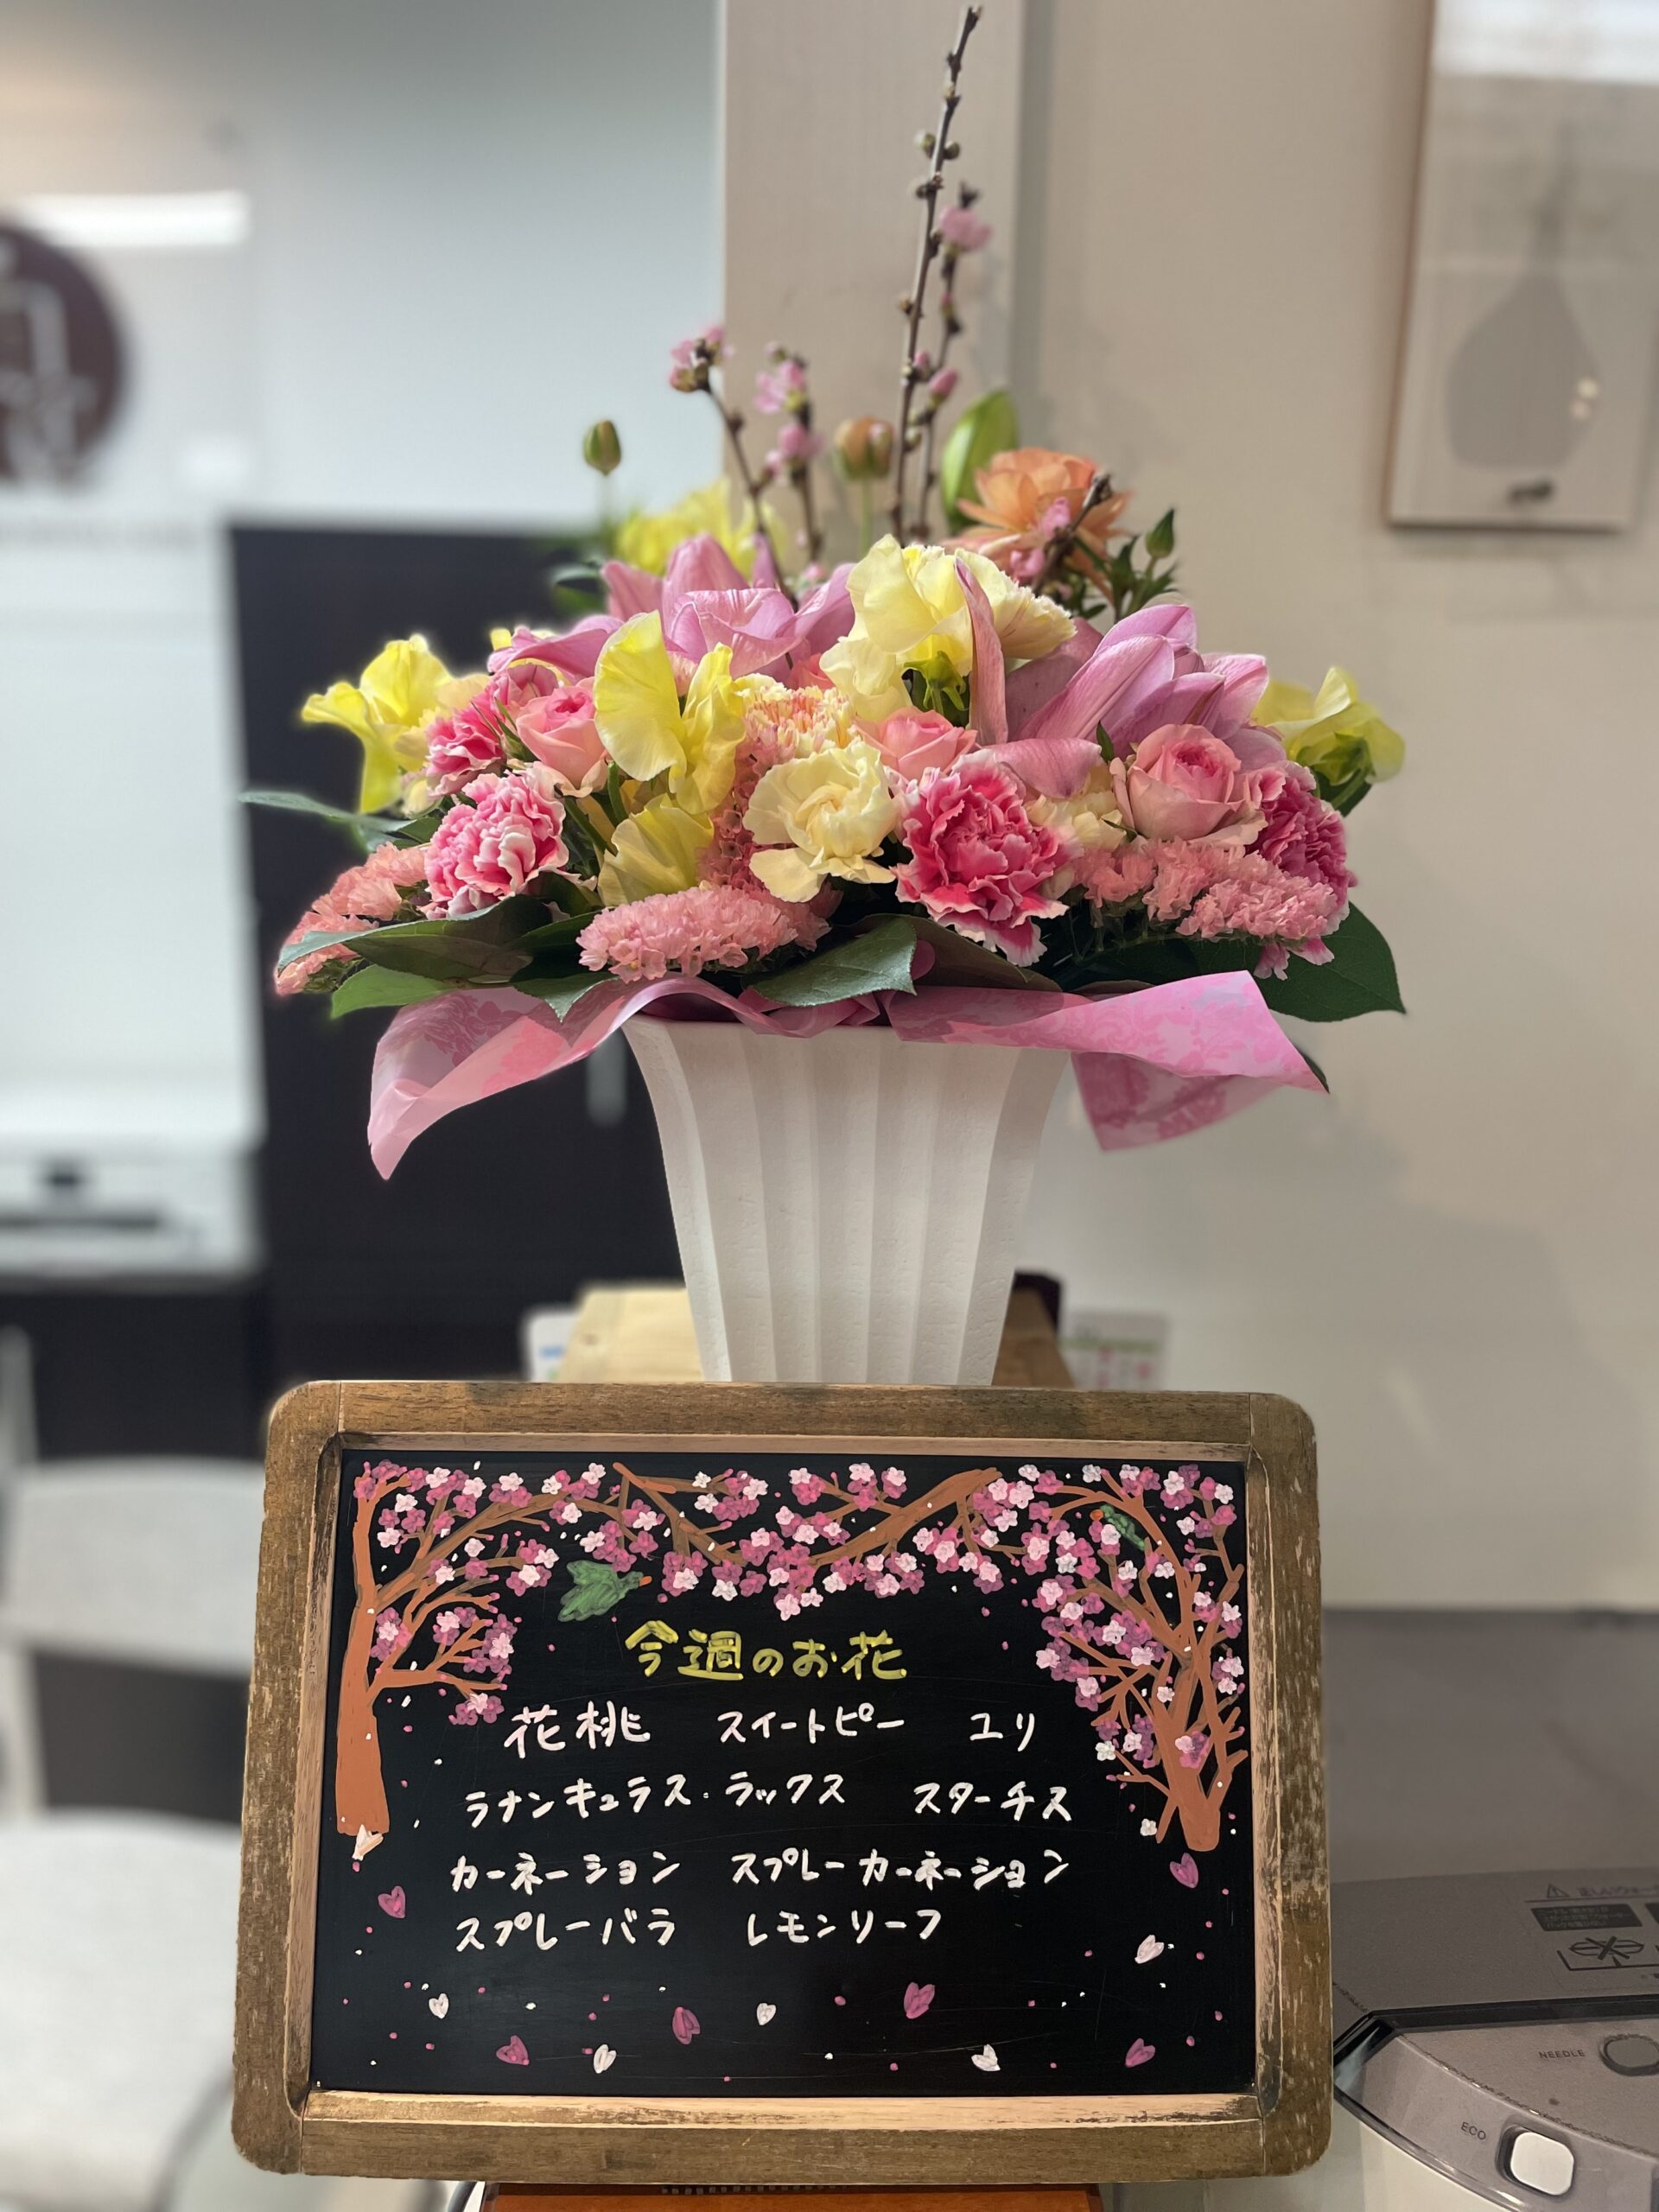 今週のお花
花桃 スイートピー ユリ
ラナンキュラス・ラックス スターチス
カーネーション スプレーカーネーション
スプレーバラ レモンリーフ
NEEDLE
ECO